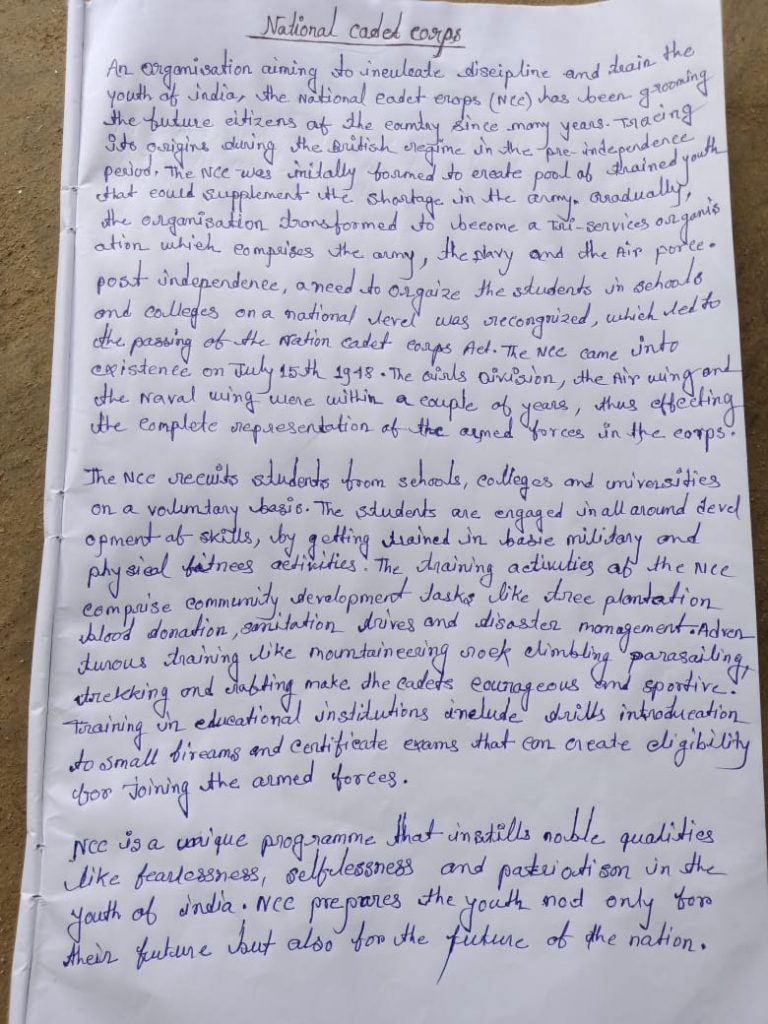 National cadet corps
An organisation aiming to inculcate discipline and train the
youth of india, the National cadet crops (NCC) has been grooming
the future citizens of the country since many years. Tracing
Its origins during the British regime in the pre-independence
period. The NCC was initally formed to create pool of trained youth
that could supplement the shortage in the army. Gradually,
the organisation transformed to become a Tri-services organis
ation which comprises the army, the Navy and the Air porce.
post independence, a need to orgaize the students in schools
and colleges on a national level was recongnized, which led to
the passing of the Nation cadet corps Act. The NCC came into
existence on July 15th 1948. The Girls Division, the Air wing and
the Naval wing were within a couple of years, thus effecting
the complete representation of the armed forces in the corps.
The NCC recuits students from schools, colleges and universities
on a voluntary basis. The students are engaged in all around devel
opment of skills, by getting trained in basic military and
physical fitnees activities. The training activities of the NCC
comprise community development tasks like tree plantation
blood donation, sanitation drives and disaster management. Adven
turous training like mountaineering rock climbling parasailing,
trekking and rafting make the cadets courageous and sportive.
Training in educational institutions include drills introducation
to small fireams and certificate exams that can create eligibility
for Joining the armed forces.
NCC is a unique programme that instills noble qualities
like fearlessness, selflessness and patriotison in the
youth of india. NCC prepares the youth not only for
their future but also for the future of the nation.